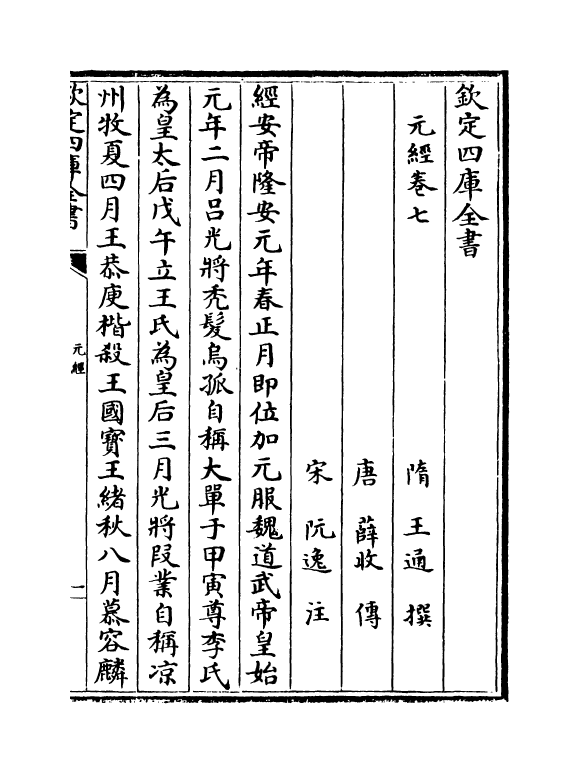 欽定四庫全書
元經卷七
隋 王通 撰
唐 薛收 傳
宋 阮逸 注
經安帝隆安元年春正月即位加元服魏道武帝皇始
元年二月吕光將秃髮烏孤自稱大單于甲寅尊李氏
為皇太后戊午立王氏為皇后三月光將叚業自稱凉
州牧夏四月王恭庾楷殺王國寶王緒秋八月慕容麟
欽定四庫全書
元經